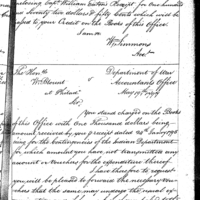 enclosing Capt William Eaton's Receipt for One hundred
and Seventy two dollars & fifty Cents which will be
pass'd to your Credit on the Books of this Office
I am &c
Wm Simmons
Acct
The Honble
Wm Blount
at Philada
Department of War
Accountants Office
May 19th 1797
Sir,
You stand charged on the Books
of this Office with One Thousand dollars being
amount received by you
for the Contingencies of the Indian Department
for which amount you have not transmitted any
account or vouchers for the expenditure thereof
I have therefore to request
will be pleased to forward the necessary vou-
chers that the same may undergo the usual ex-